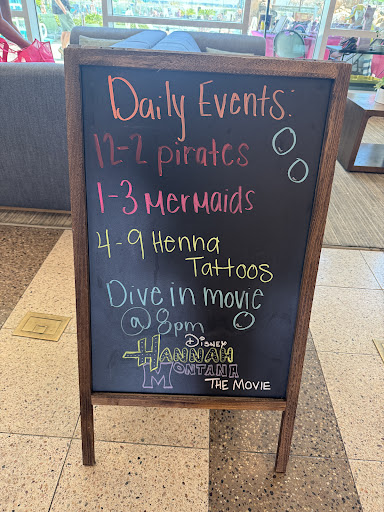 Daily Events:
12-2 pirates
1-3 Mermaids
4-9 Henna
Tattoos
Dive in movie
@ 8pm
Disney
Hannah
Montana
THE MOVIE